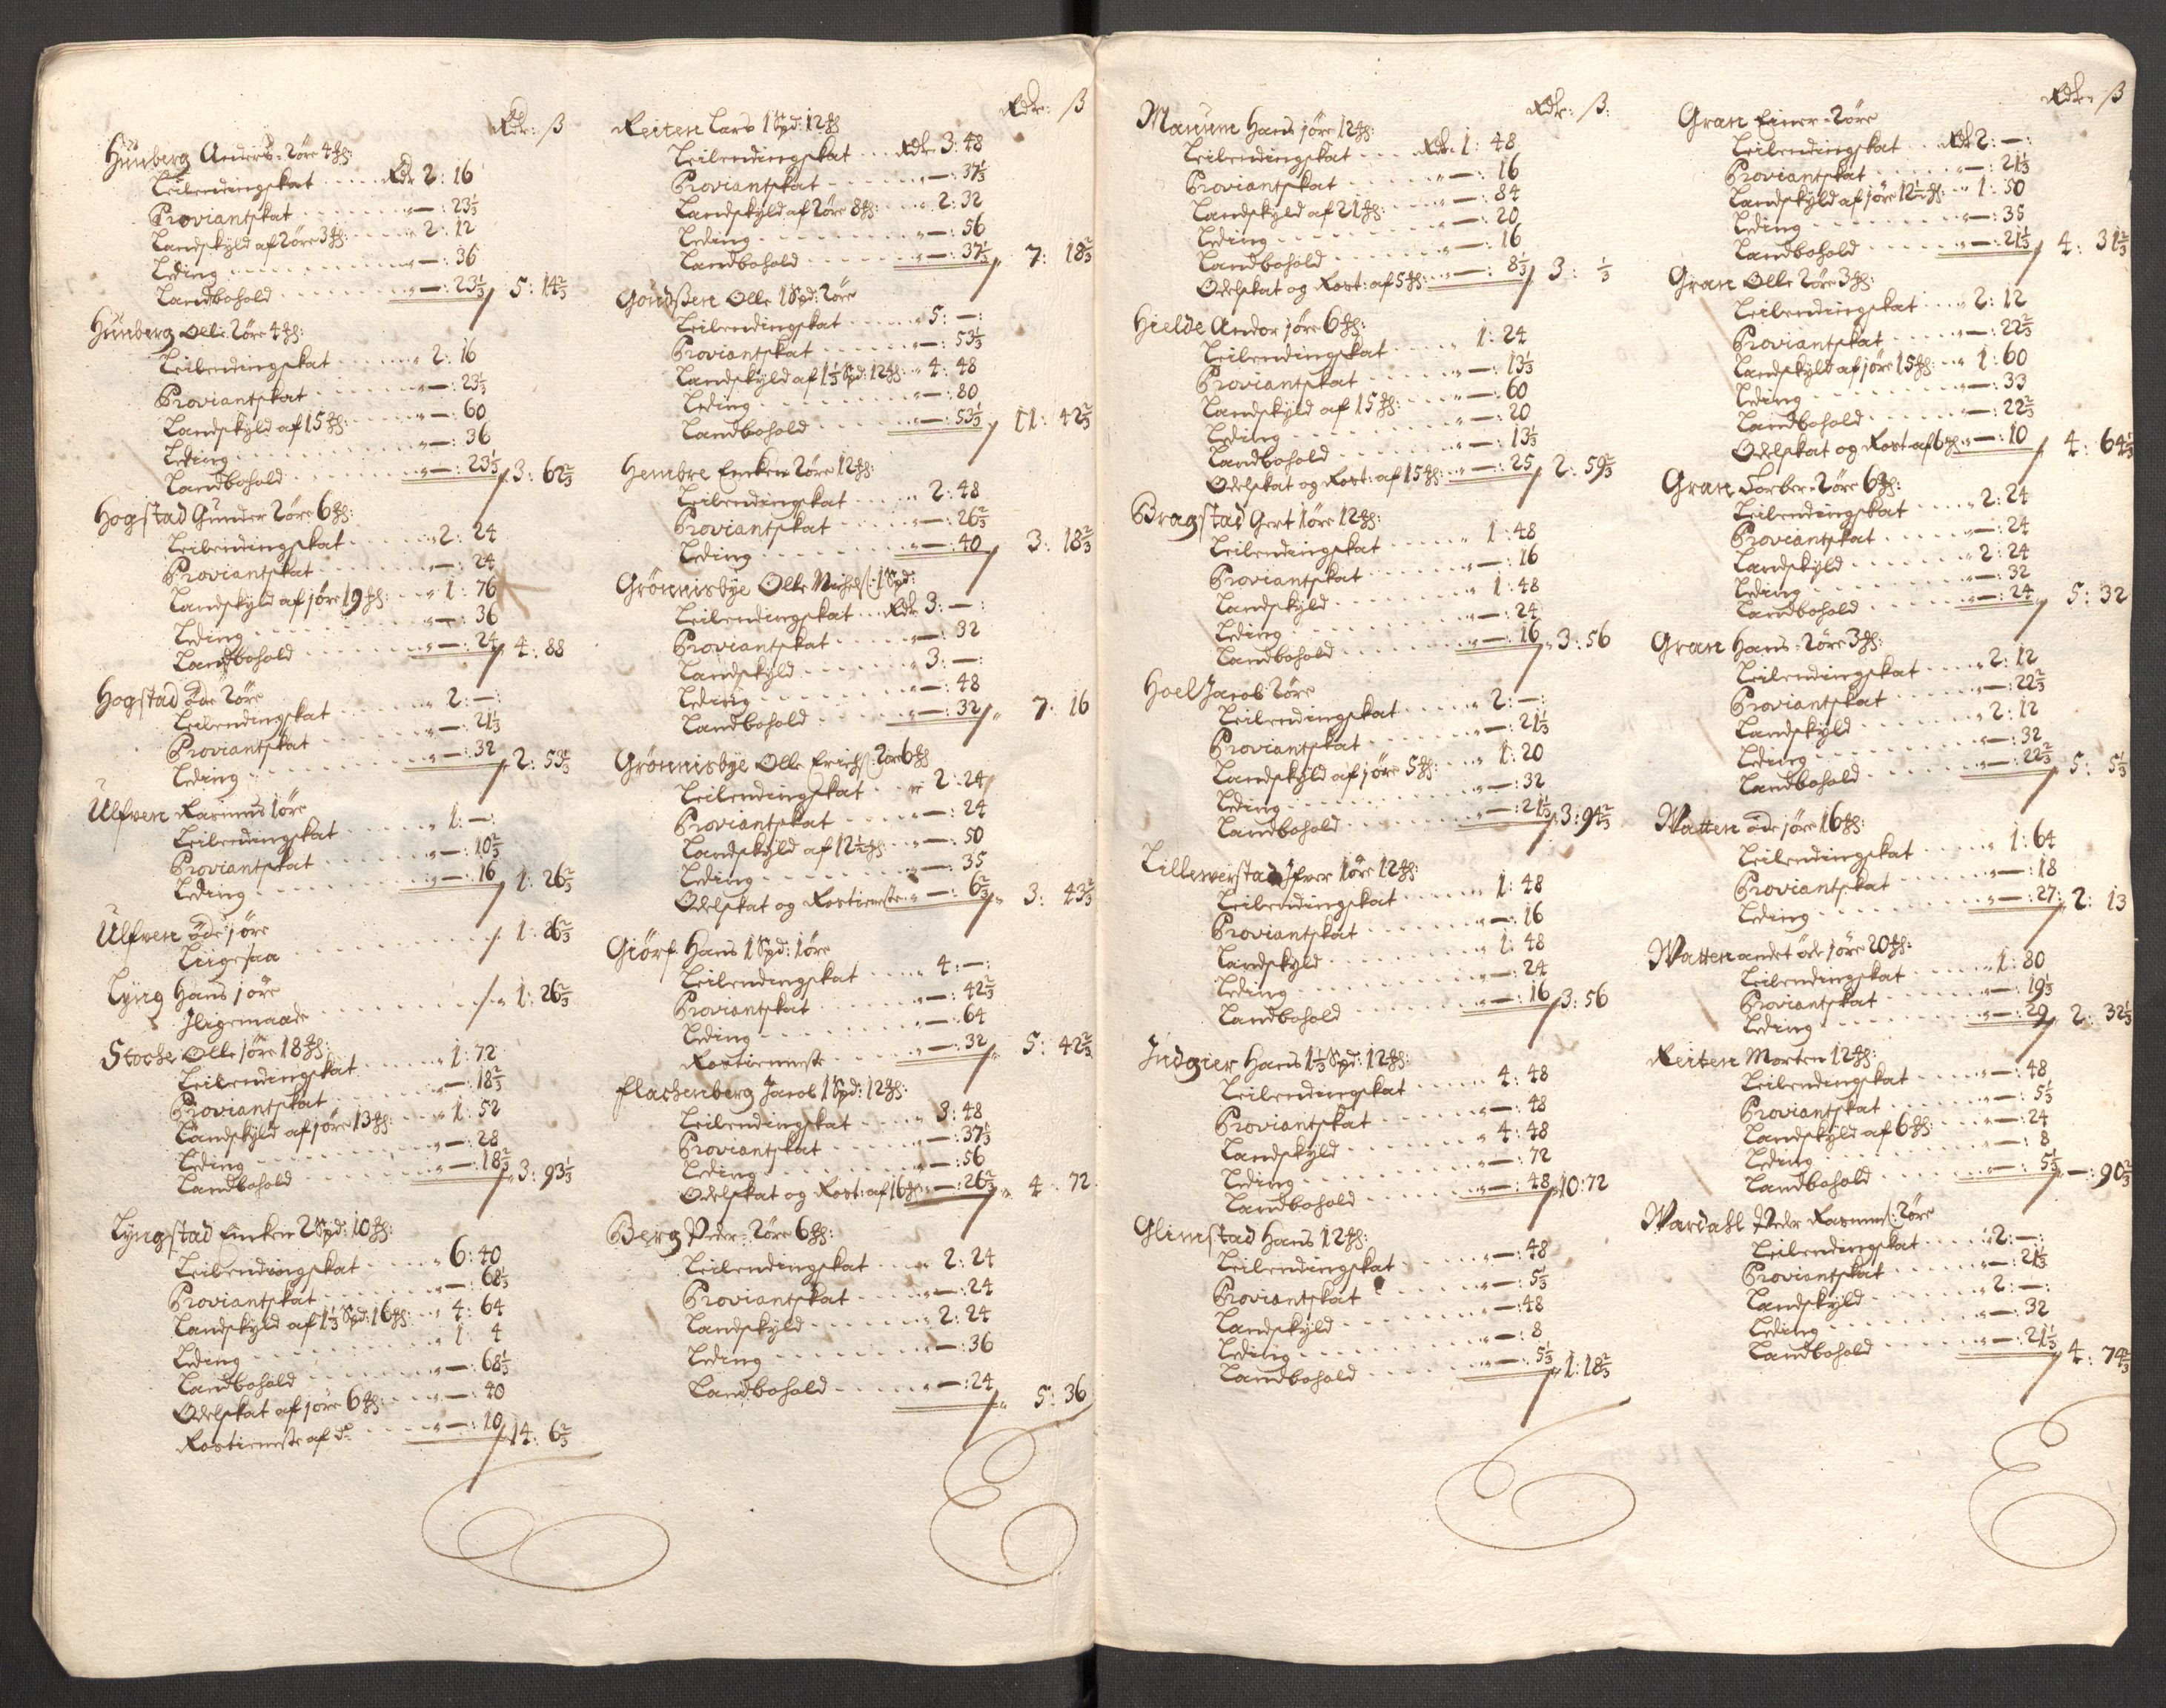 Rdr: ß
Hünberg Anders 2 öre 4 ꝳß:
Leilendingskat .... Rdr 2: 16
Proviantskat ..... — : 23⅓
Landskyld af 2 öre 3 ꝳß: 2: 12
Leding ..... — : 36
Landbohold ..... — : 23⅓ 5: 14⅔
Hünberg Olle 2 öre 4 ꝳß:
Leilendingskat ..... 2: 16
Proviantskat ..... — : 23⅓
Landskyld af 15 ꝳß: — : 60
Leding ..... — : 36
Landbohold ..... — : 23⅓ 3: 62⅔
Hogstad Gunder 2 öre 6 ꝳß:
Leilendingskat ..... 2: 24
Proviantskat ..... — : 24
Landskyld af jöre 19 ꝳß: 1: 76
Leding ..... — : 36
Landbohold ..... — : 24 4: 88
Hogstad öde 2 öre
Leilendingskat ..... 2: —:
Proviantskat ..... — : 21⅓
Leding ..... — : 32 2: 53⅓
Ulfven Rasmus 1 öre
Leilendingskat ..... 1: —:
Proviantskat ..... — : 10⅔
Leding ..... — : 16 1: 26⅔
Ulfven öde jöre
Liigesaa ..... 1: 26⅔
Lyng Hans jöre
Iligemaade ..... 1: 26⅔
Stoche Olle jöre 18 ꝳß:
Leilendingskat ..... 1: 72
Proviantskat ..... — : 18⅔
Landskyld af jöre 13 ꝳß: 1: 52
Leding ..... — : 28
Landbohold ..... — : 18⅔ 3: 93⅓
Lyngstad Encken 2 Spd: 10 ꝳß:
Leilendingskat ..... 6: 40
Proviantskat ..... — : 68⅓
Landskyld af 1⅓ Spd: 16 ꝳß: 4: 64
Leding ..... 1: 4
Landbohold ..... — : 68⅓
Odelskat af jöre 6 ꝳß: — : 40
Rostieneste af do ..... — : 10 14: 6⅔
Rdr: ß
Reiten Lars 1 Spd: 12 ꝳß
Leilendingskat ... Rdr 3: 48
Proviantskat ..... — : 37⅓
Landskyld af 2 öre 8 ꝳß: 2: 32
Leding ..... — : 56
Landbohold ..... — : 37⅓ 7: 18⅔
Goudßen Olle 1 Spd: 2 öre
Leilendingskat ..... 5: —:
Proviantskat ..... — : 53⅓
Landskyld af 1⅓ Spd: 12 ꝳß: 4: 48
Leding ..... — : 80
Landbohold ..... — : 53⅓ 11: 42⅔
Hembre Encken 2 öre 12 ꝳß:
Leilendingskat ..... 2: 48
Proviantskat ..... — : 26⅔
Leding ..... — : 40 3: 18⅔
Grönnisbye Olle Michels: 1 Spd:
Leilendingskat ... Rdr 3: —:
Proviantskat ..... — : 32
Landskyld ..... 3: —:
Leding ..... — : 48
Landbohold ..... — : 32 7: 16
Grönnisbye Olle Erichs: 2 öre 6 ꝳß
Leilendingskat ... 2: 24
Proviantskat ..... — : 24
Landskyld af 12½ ꝳß: — : 50
Leding ..... — : 35
Odelskat og Rostieneste — : 6⅔ 3: 43⅔
Giörf Hans 1 Spd: 1 öre
Leilendingskat ..... 4: —:
Proviantskat ..... — : 42⅔
Leding ..... — : 64
Rostieneste ..... — : 32 5: 42⅔
Flachenberg Jacob 1 Spd: 12 ꝳß:
Leilendingskat ..... 3: 48
Proviantskat ..... — : 37⅓
Leding ..... — : 56
Odelskat og Rost: af 16 ꝳß: — : 26⅔ 4: 72
Berg Peder 2 öre 6 ꝳß:
Leilendingskat ..... 2: 24
Proviantskat ..... — : 24
Landskyld ..... 2: 24
Leding ..... — : 36
Landbohold ..... — : 24 5: 36
Rdr: ß:
Manum Hans jöre 12 ꝳß:
Leilendingskat ... Rdr 1: 48
Proviantskat ..... — : 16
Landskyld af 21 ꝳß: — : 84
Leding ..... — : 20
Landbohold ..... — : 16
Odelskat og Rost: af 5 ꝳß: — : 8⅓ 3: ⅓
Hielde Andor jöre 6 ꝳß:
Leilendingskat ..... 1: 24
Proviantskat ..... — : 13⅓
Landskyld af 15 ꝳß: — : 60
Leding ..... — : 20
Landbohold ..... — : 13⅓
Odelskat og Rost: af 15 ꝳß: — : 25 2: 59⅔
Bragstad Gert 1 öre 12 ꝳß:
Leilendingskat ..... 1: 48
Proviantskat ..... — : 16
Landskyld ..... 1: 48
Leding ..... — : 24
Landbohold ..... — : 16 3: 56
Hoel Jacob 2 öre
Leilendingskat ..... 2: —:
Proviantskat ..... — : 21⅓
Landskyld af jöre 5 ꝳß: 1: 20
Leding ..... — : 32
Landbohold ..... — : 21⅓ 3: 94⅔
Lillewerstad Ifver 1 öre 12 ꝳß:
Leilendingskat ..... 1: 48
Proviantskat ..... — : 16
Landskyld ..... 1: 48
Leding ..... — : 24
Landbohold ..... — : 16 3: 56
Indgier Hans 1⅓ Spd: 12 ꝳß:
Leilendingskat ..... 4: 48
Proviantskat ..... — : 48
Landskyld ..... 4: 48
Leding ..... — : 72
Landbohold ..... — : 48 10: 72
Glimstad Hans 12 ꝳß:
Leilendingskat ..... — : 48
Proviantskat ..... — : 5⅓
Landskyld ..... — : 48
Leding ..... — : 8
Landbohold ..... — : 5⅓ 1: 18⅔
Rdr: ß
Gran Einer 2 öre
Leilendingskat .. Rdr 2: —:
Proviantskat ..... — : 21⅓
Landskyld af jöre 12½ ꝳß: 1: 50
Leding ..... — : 35
Landbohold ..... — : 21⅓ 4: 31⅔
Gran Olle 2 öre 3 ꝳß:
Leilendingskat ..... 2: 12
Proviantskat ..... — : 22⅔
Landskyld af jöre 15 ꝳß: 1: 60
Leding ..... — : 33
Landbohold ..... — : 22⅔
Odelskat og Rost af 6 ꝳß — : 10 4: 64⅓
Gran Torber 2 öre 6 ꝳß:
Leilendingskat ..... 2: 24
Proviantskat ..... — : 24
Landskyld ..... 2: 24
Leding ..... — : 32
Landbohold ..... — : 24 5: 32
Gran Hans 2 öre 3 ꝳß:
Leilendingskat ..... 2: 12
Proviantskat ..... — : 22⅔
Landskyld ..... 2: 12
Leding ..... — : 32
Landbohold ..... — : 22⅔ 5: 5⅓
Watten öde jöre 16 ꝳß:
Leilendingskat ..... 1: 64
Proviantskat ..... — : 18
Leding ..... — : 27: 2: 13
Watten andet öde jöre 20 ꝳß:
Leilendingskat ..... 1: 80
Proviantskat ..... — : 19⅓
Leding ..... — : 29 2: 32⅓
Reiten Morten 12 ꝳß:
Leilendingskat ..... — : 48
Proviantskat ..... — : 5⅓
Landskyld af 6 ꝳß: — : 24
Leding ..... — : 8
Landbohold ..... — : 5⅓ — : 90⅔
Wardahl Peder Rasmus: 2 öre
Leilendingskat ..... 2: —:
Proviantskat ..... — : 21⅓
Landskyld ..... 2: —:
Leding ..... — : 32
Landbohold ..... — : 21⅓ 4: 74⅔